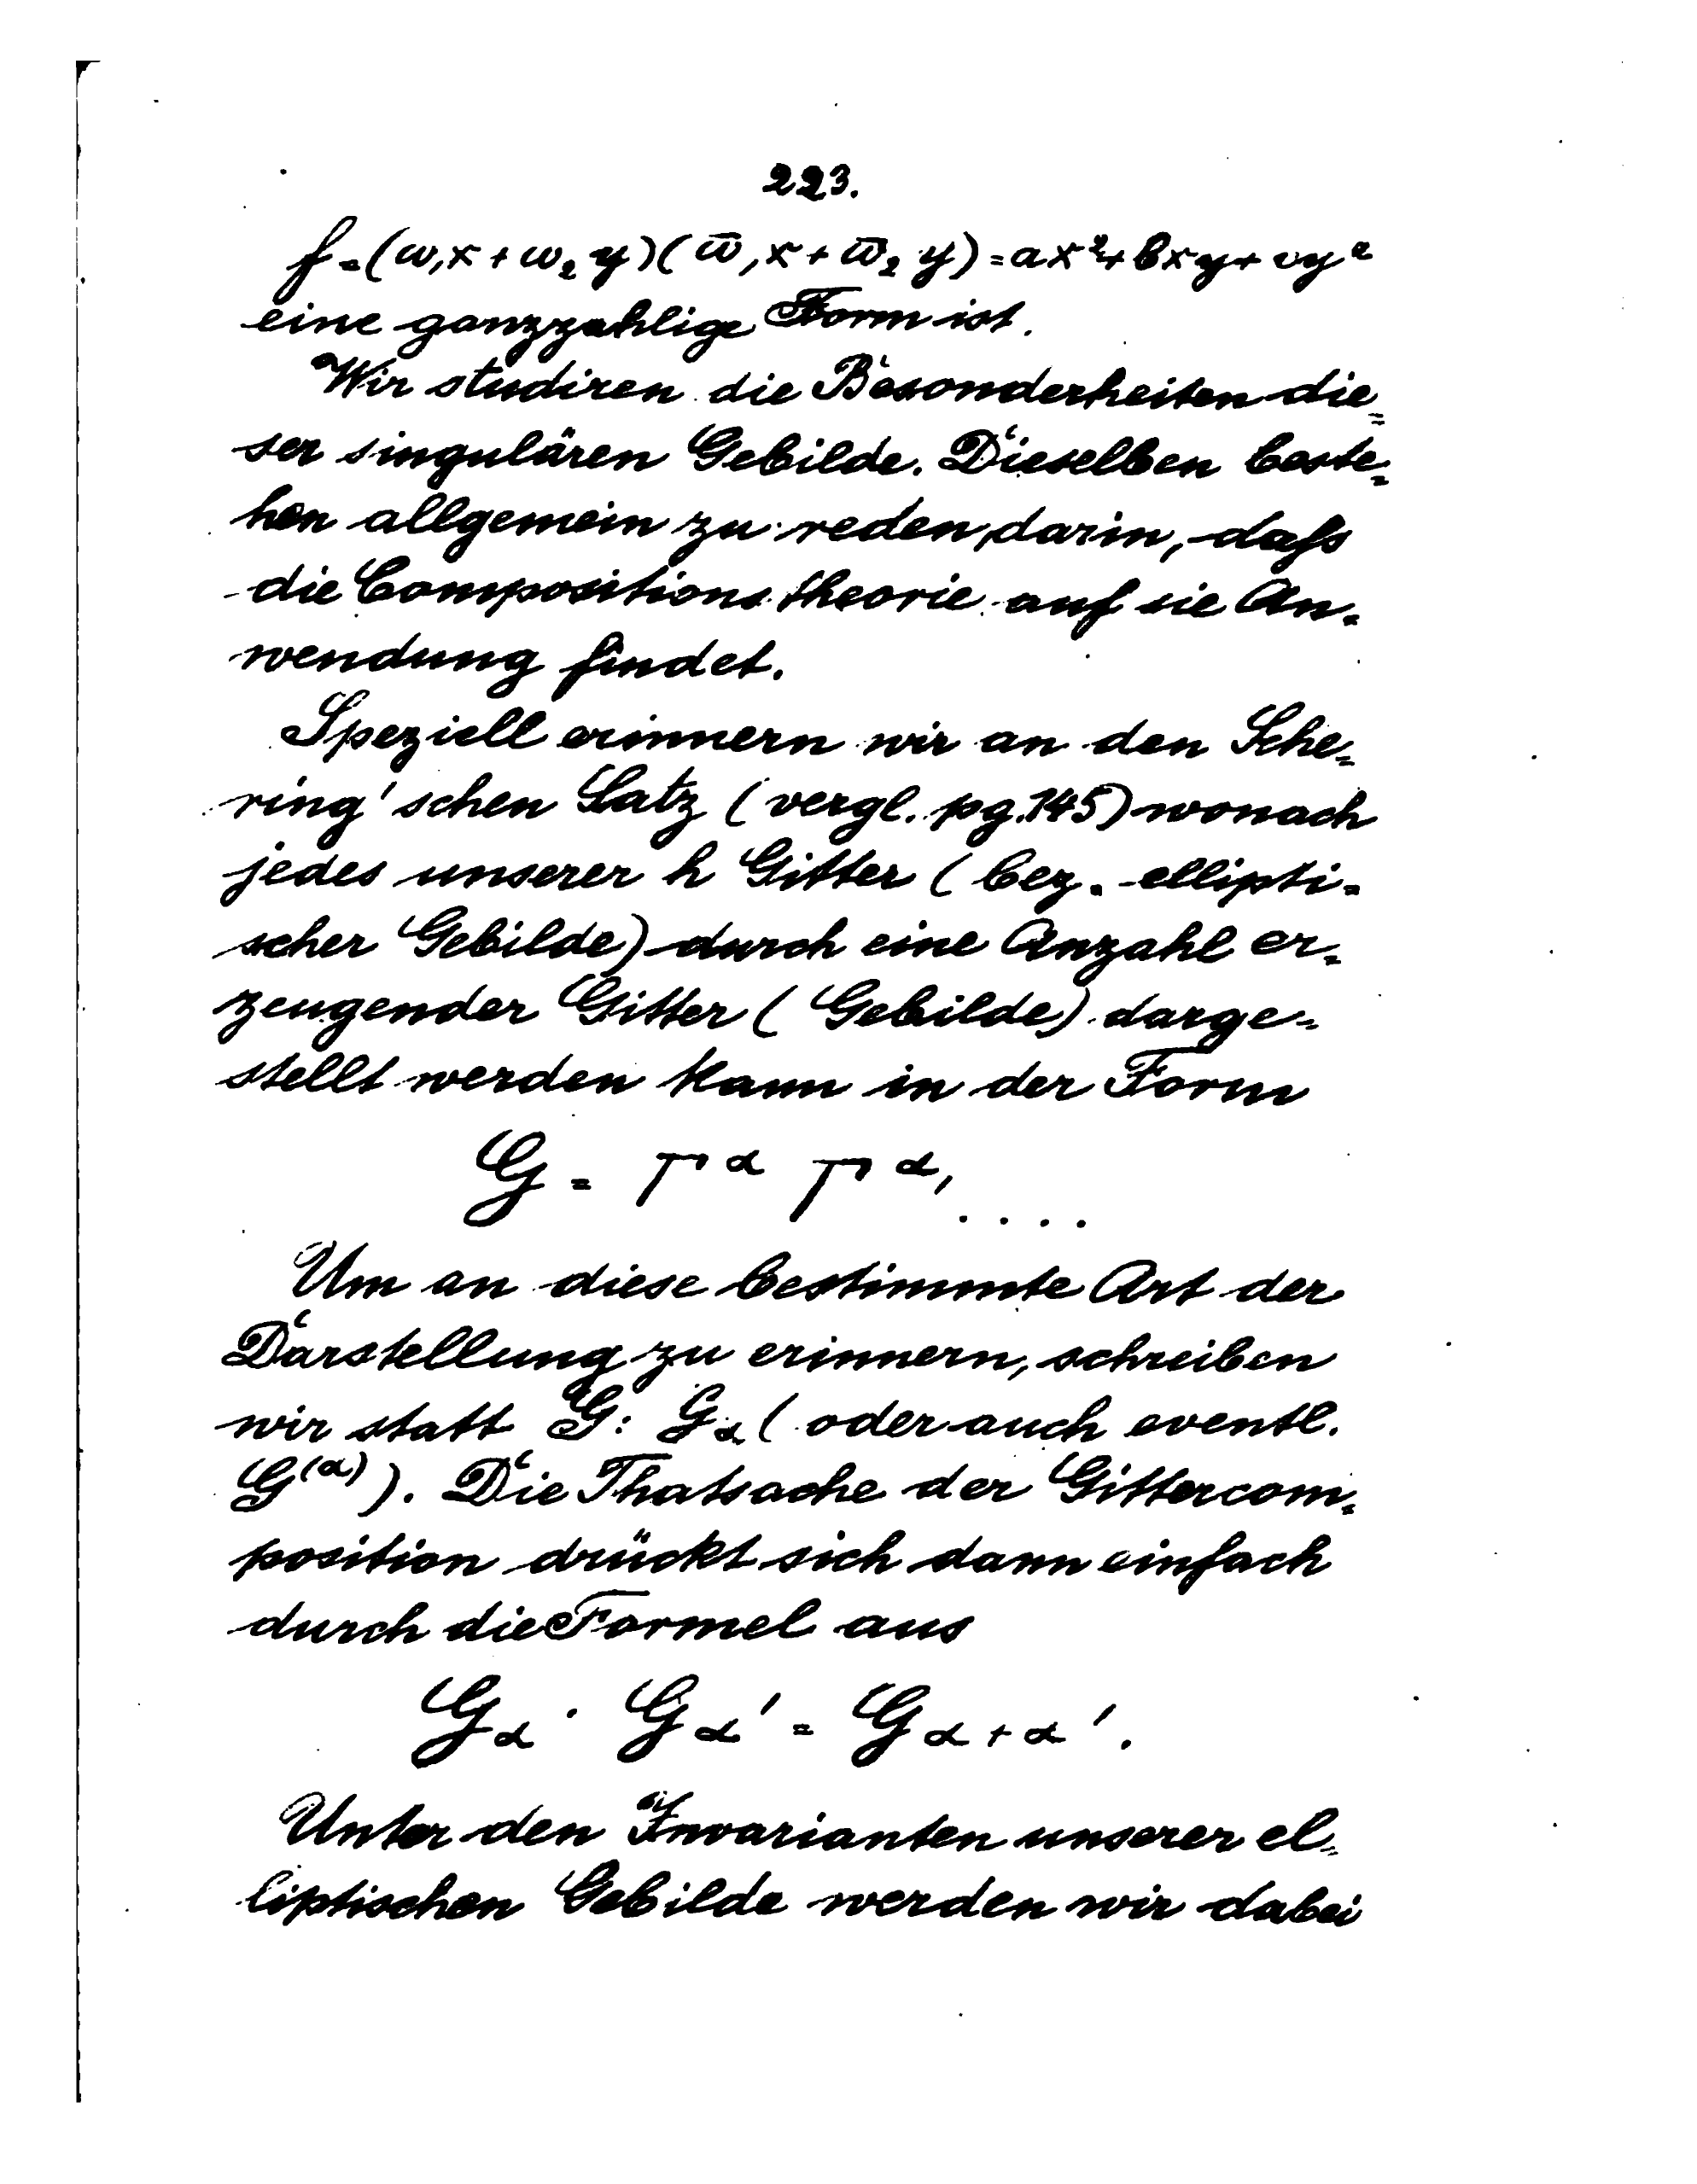 223.
f = (ω₁x + ω₂y)(ω̄₁x + ω̄₂y) = ax² + bxy + cy²
eine ganzzahlige Form ist.
Wir studiren die Besonderheiten die=
ser singulären Gebilde. Dieselben beste=
hen allgemein zu reden, darin, daſs
die Compositionstheorie auf sie An=
wendung findet.
Speziell erinnern wir an den Sche=
ring'schen Satz (vergl. pg. 145) wonach
jedes unserer h Gitter (bez. ellipti=
scher Gebilde) durch eine Anzahl er=
zeugender Gitter (Gebilde) darge=
stellt werden kann in der Form
G = Γ^α Γ^α₁ ....
Um an diese bestimmte Art der
Darstellung zu erinnern, schreiben
wir statt G: G_α (oder auch eventl.
G^(α)). Die Thatsache der Gittercom=
position drückt sich dann einfach
durch die Formel aus
G_α · G_α' = G_α+α'.
Unter den Invarianten unserer el=
liptischen Gebilde werden wir dabei